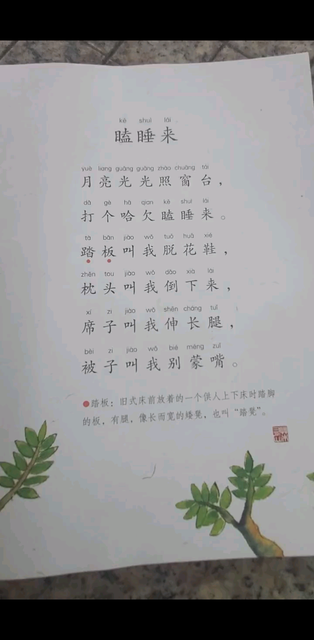 kē shuì lái
瞌睡来
yuè liang guāng guāng zhào chuāng tái
月亮光光照窗台，
dǎ gè hā qian kē shuì lái
打个哈欠瞌睡来。
tà bǎn jiào wǒ tuō huā xié
踏板叫我脱花鞋，
zhěn tou jiào wǒ dǎo xià lái
枕头叫我倒下来，
xí zi jiào wǒ shēn cháng tuǐ
席子叫我伸长腿，
bèi zi jiào wǒ bié mēng zuǐ
被子叫我别蒙嘴。
踏板：旧式床前放着的一个供人上下床时踏脚
的板，有腿，像长而宽的矮凳，也叫“踏凳”。